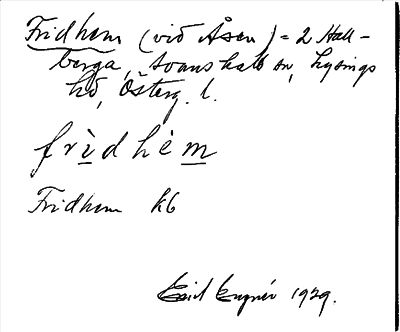 Fridhem (vid Åsen) = 2 Hall-
berga, Svanshals sn, Lysings
hd, Österg. l.
fridhèm
Fridhem kb
Emil Engnér 1929.